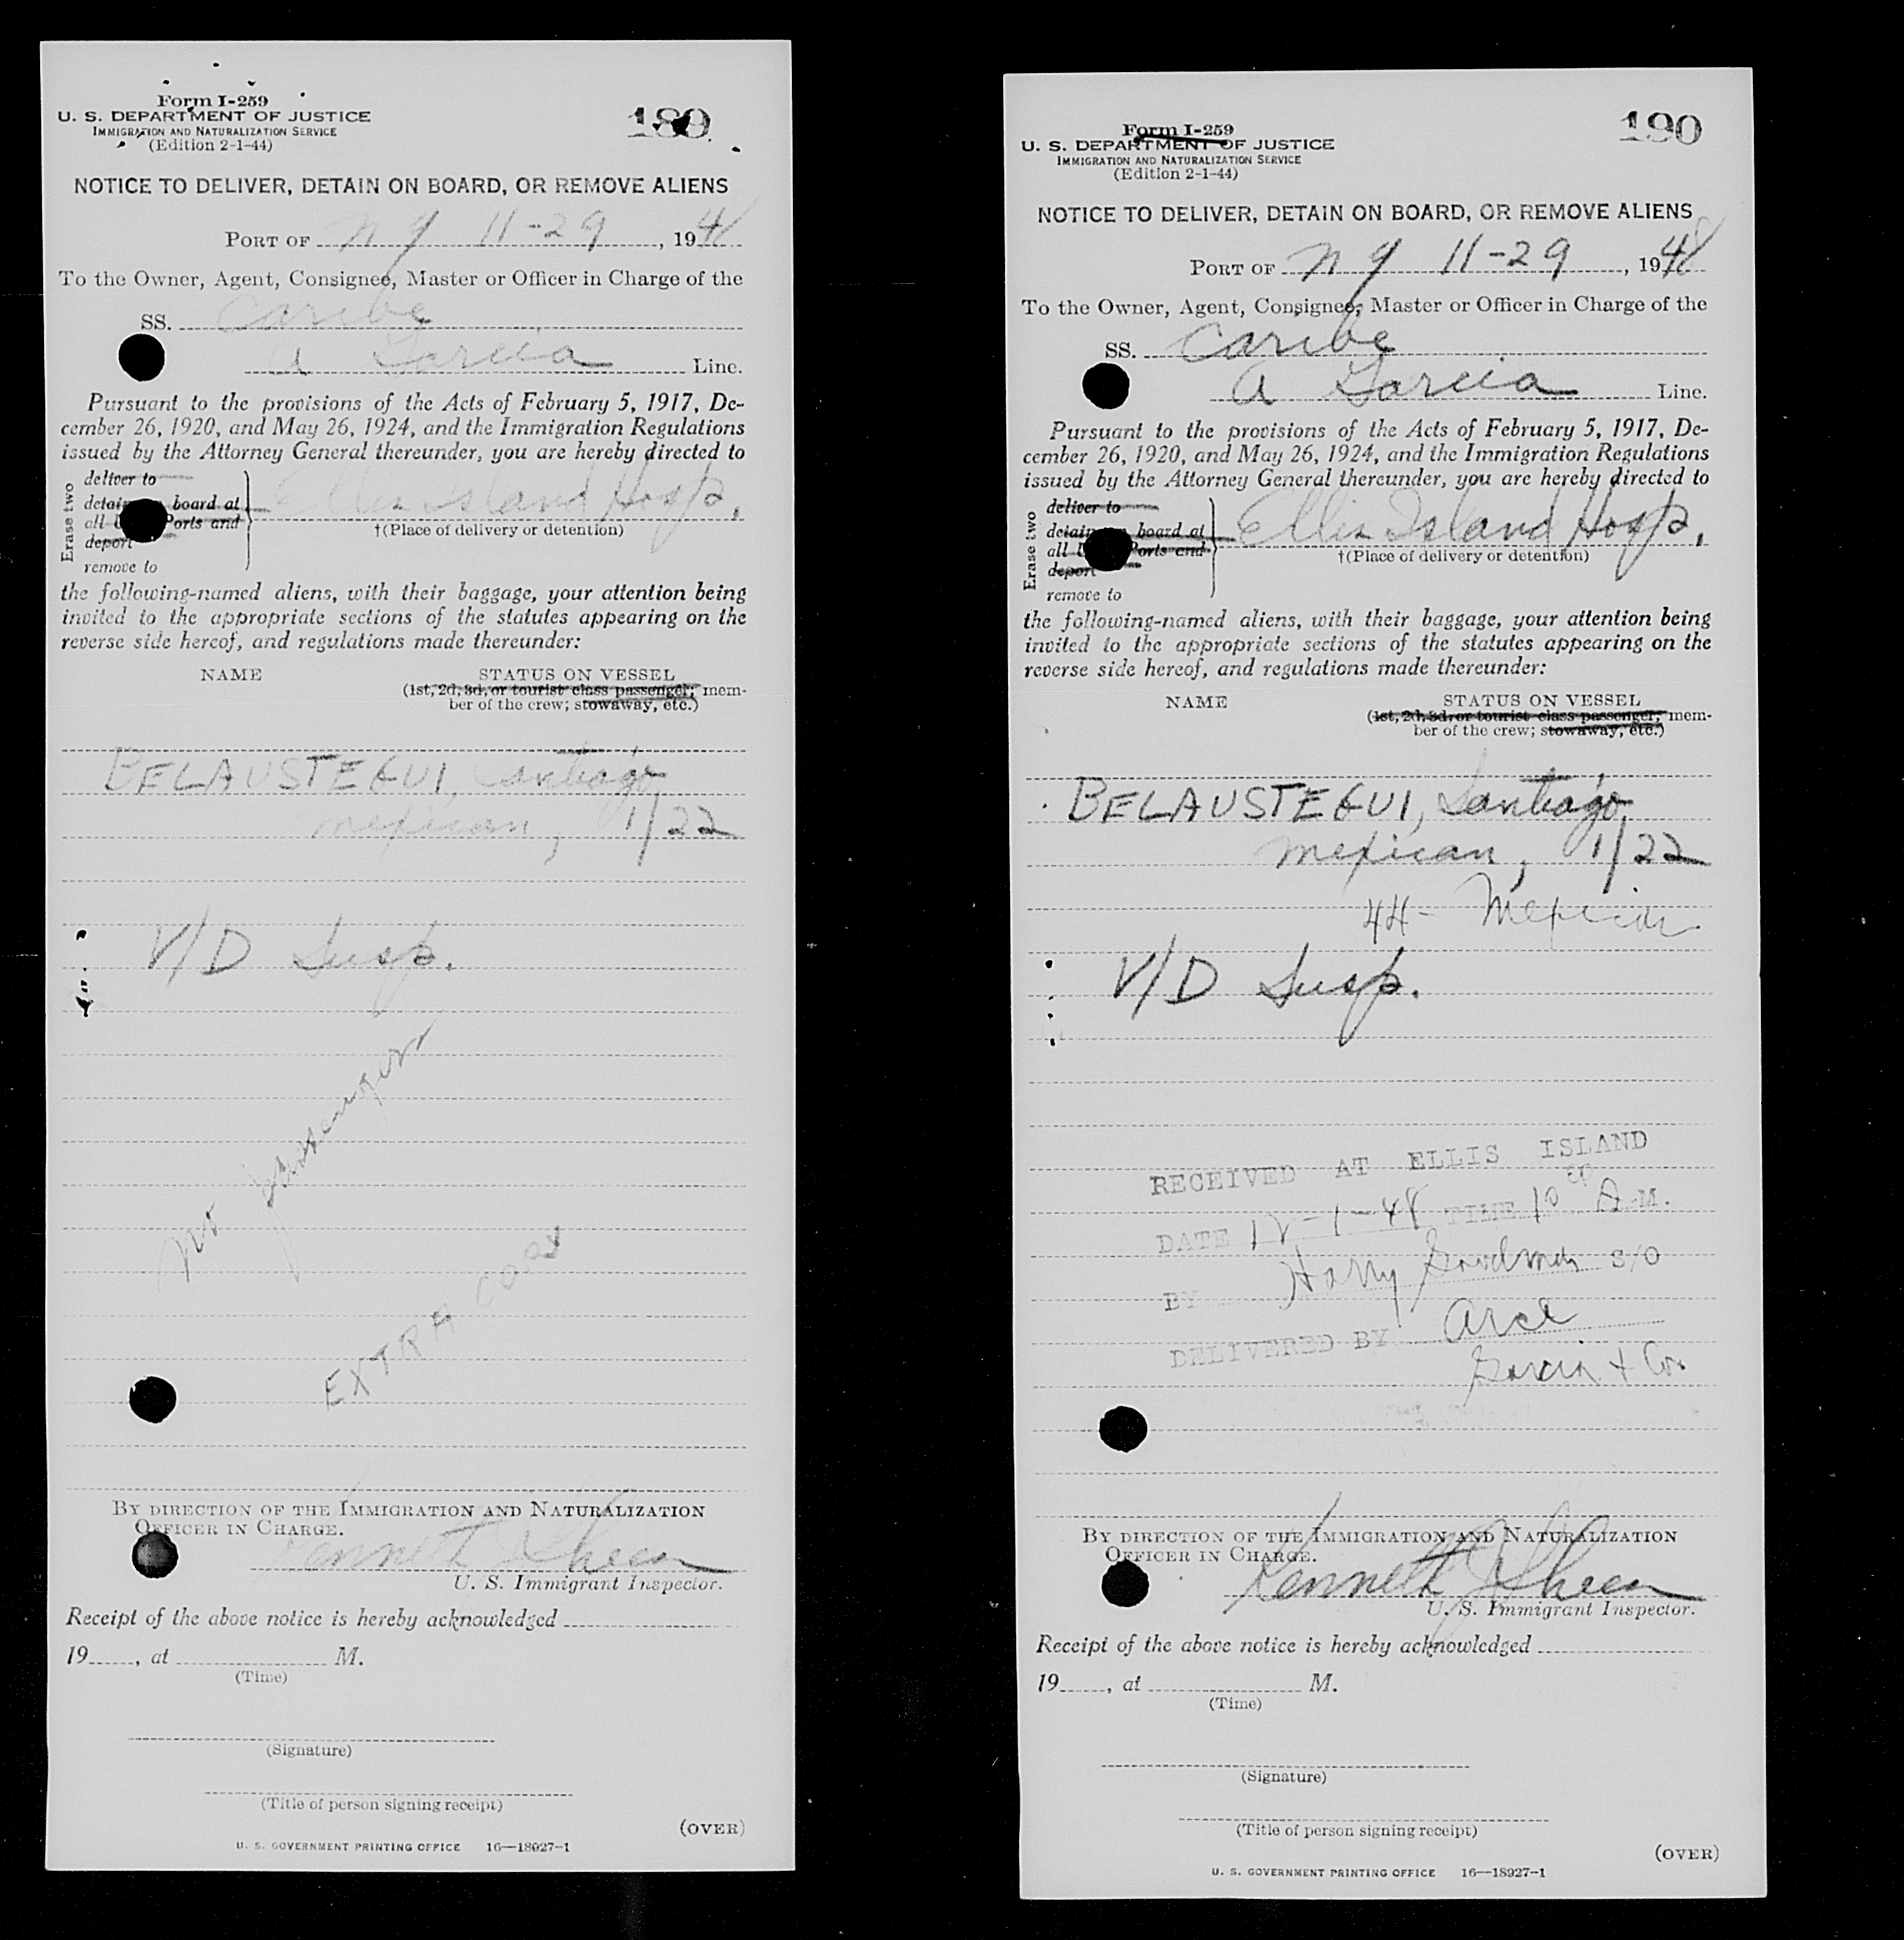 Form I-259
U. S. DEPARTMENT OF JUSTICE
IMMIGRATION AND NATURALIZATION SERVICE
(Edition 2-1-44)
189
NOTICE TO DELIVER, DETAIN ON BOARD, OR REMOVE ALIENS
PORT OF N Y 11-29, 1948
To the Owner, Agent, Consignee, Master or Officer in Charge of the
SS. Caribe
A Garcia Line.
Pursuant to the provisions of the Acts of February 5, 1917, De-
cember 26, 1920, and May 26, 1924, and the Immigration Regulations
issued by the Attorney General thereunder, you are hereby directed to
Erase two
deliver to
board at
all Ports and
deport
remove to
Ellis Island Hosp.
†(Place of delivery or detention)
the following-named aliens, with their baggage, your attention being
invited to the appropriate sections of the statutes appearing on the
reverse side hereof, and regulations made thereunder:
NAME STATUS ON VESSEL
(1st, 2d, 3d, or tourist class passenger; mem-
ber of the crew; stowaway, etc.)
BELAUSTEGUI, Santiago
Mexican, 1/22
V/D Susp.
No passengers
EXTRA COPY
BY DIRECTION OF THE IMMIGRATION AND NATURALIZATION
OFFICER IN CHARGE.
Kenneth J Sheen
U. S. Immigrant Inspector.
Receipt of the above notice is hereby acknowledged
19, at M.
(Time)
(Signature)
(Title of person signing receipt)
(OVER)
U. S. GOVERNMENT PRINTING OFFICE 16—18927-1
Form I-259
U. S. DEPARTMENT OF JUSTICE
IMMIGRATION AND NATURALIZATION SERVICE
(Edition 2-1-44)
190
NOTICE TO DELIVER, DETAIN ON BOARD, OR REMOVE ALIENS
PORT OF N Y 11-29, 1948
To the Owner, Agent, Consignee, Master or Officer in Charge of the
SS. Caribe
A Garcia Line.
Pursuant to the provisions of the Acts of February 5, 1917, De-
cember 26, 1920, and May 26, 1924, and the Immigration Regulations
issued by the Attorney General thereunder, you are hereby directed to
Erase two
deliver to
board at
all Ports and
deport
remove to
Ellis Island Hosp.
†(Place of delivery or detention)
the following-named aliens, with their baggage, your attention being
invited to the appropriate sections of the statutes appearing on the
reverse side hereof, and regulations made thereunder:
NAME STATUS ON VESSEL
(1st, 2d, 3d, or tourist class passenger; mem-
ber of the crew; stowaway, etc.)
BELAUSTEGUI, Santiago
Mexican, 1/22
44 - Mexican
V/D Susp.
RECEIVED AT ELLIS ISLAND
DATE 12-1-48 TIME 10 00 A.M.
BY Harry Goodman S/O
DELIVERED BY Arce
Garcia + Co.
BY DIRECTION OF THE IMMIGRATION AND NATURALIZATION
OFFICER IN CHARGE.
Kenneth J Sheen
U. S. Immigrant Inspector.
Receipt of the above notice is hereby acknowledged
19, at M.
(Time)
(Signature)
(Title of person signing receipt)
(OVER)
U. S. GOVERNMENT PRINTING OFFICE 16—18927-1